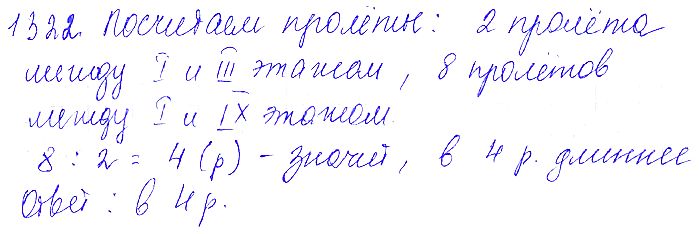 1322. Посчитаем пролёты: 2 пролёта
между I и III этажом, 8 пролётов
между I и IX этажом.
8 : 2 = 4 (р) - значит, в 4 р. длиннее
Ответ: в 4 р.